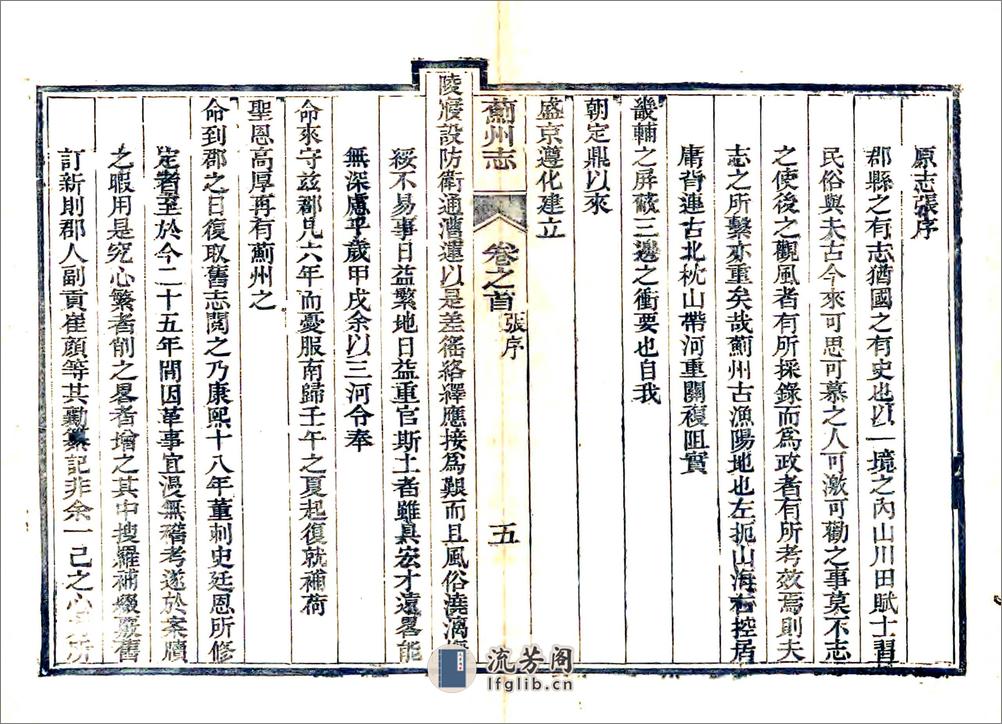 原志張序
郡縣之有志猶國之有史也以一境之內山川田賦士習
民俗與夫古今來可思可慕之人可激可勸之事莫不志
之使後之觀風者有所採錄而爲政者有所考效焉則夫
志之所繫亦重矣哉薊州古漁陽地也左扼山海右控居
庸背連古北枕山帶河重關複阻實
畿輔之屏蔽三邊之衝要也自我
朝定鼎以來
盛京遵化建立
薊州志
卷之首
張序
五
陵寢設防衛通漕運以是差徭絡繹應接爲艱而且風俗澆漓
綏不易事日益繁地日益重官斯土者雖具宏才遠畧能
無深慮乎歲甲戌余以三河令奉
命來守兹郡凡六年而憂服南歸壬午之夏起復就補荷
聖恩高厚再有薊州之
命到郡之日復取舊志閱之乃康熙十八年董刺史廷恩所修
定者至於今二十五年間因革事宜漫無稽考遂於案牘
之暇用是究心繁者削之畧者增之其中搜羅補綴竄舊
訂新則郡人副貢崔顏等其勷纂記非余一己之心所
流芳阁
lfglib.cn